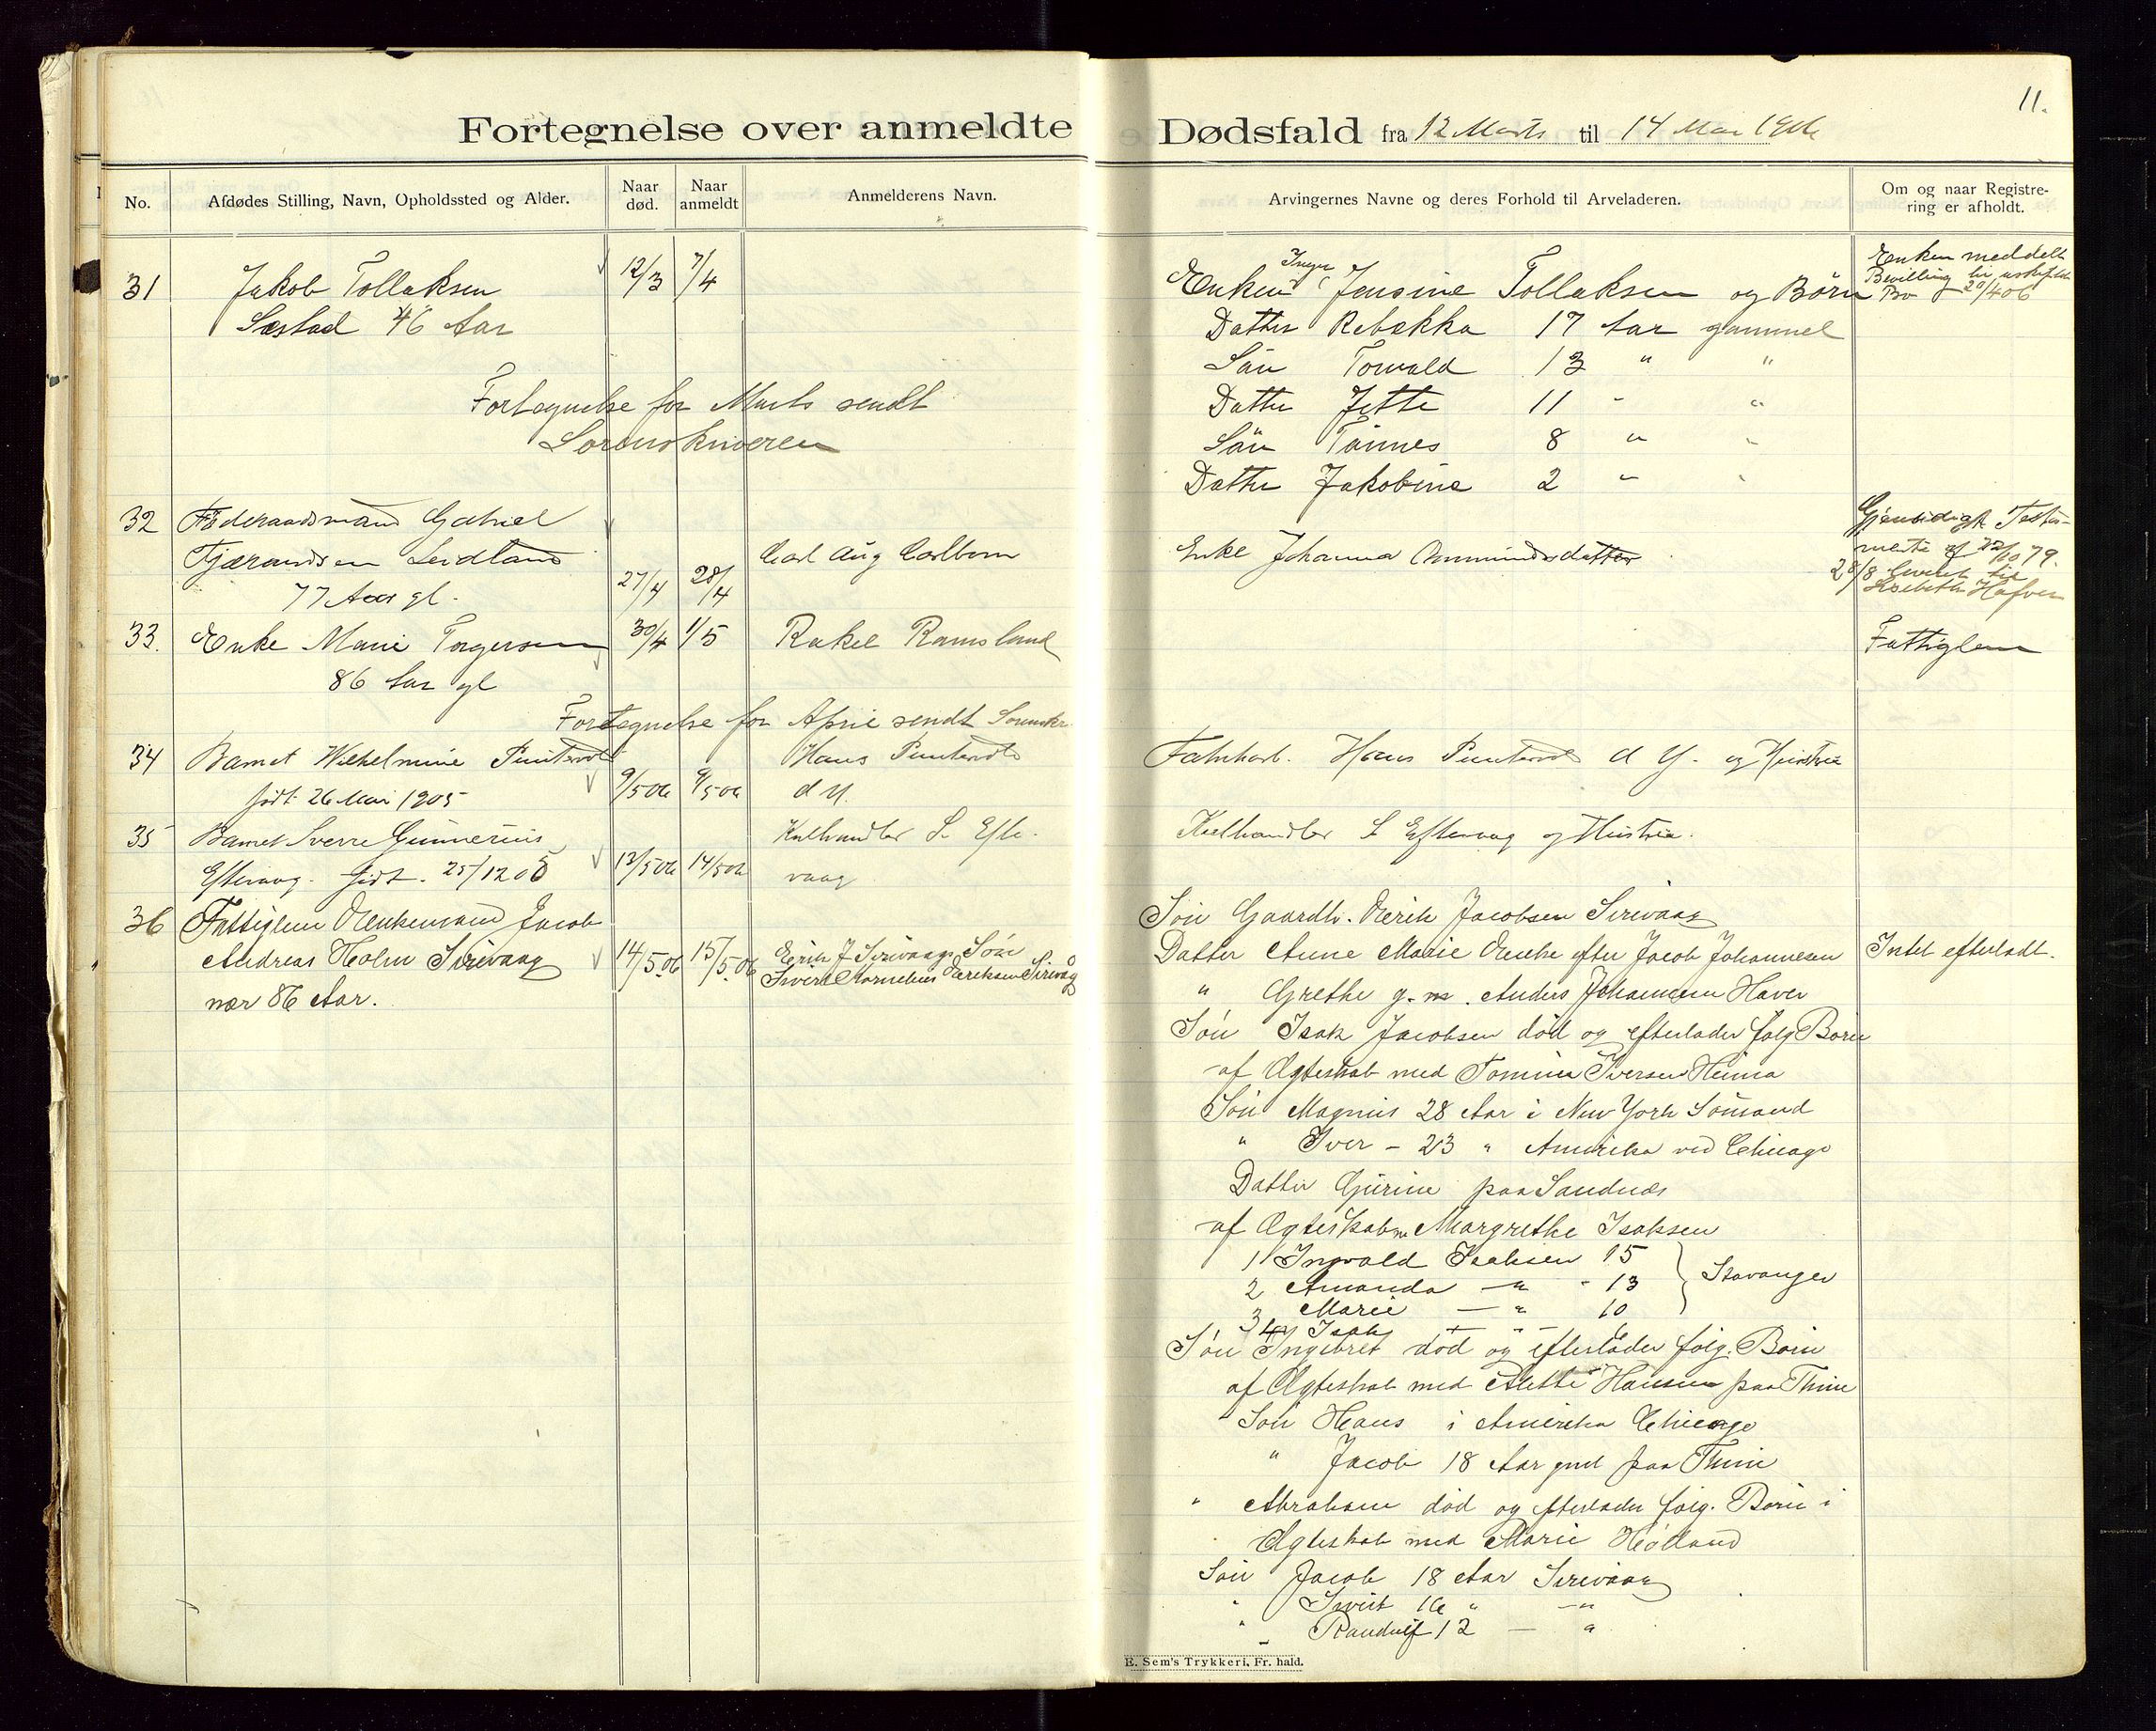 11.
Fortegnelse over anmeldte Dødsfald fra 12 Marts til 14 Mai 1906
No.
Afdødes Stilling, Navn, Opholdssted og Alder.
Naar død.
Naar anmeldt
Anmelderens Navn.
Arvingernes Navne og deres Forhold til Arveladeren.
Om og naar Registrering er afholdt.
31 Jakob Tollaksen 12/3 7/4
Sæstad 46 Aar
Enken Inger Jensine Tollaksen og Børn
Datter Rebekka 17 Aar gammel
Sön Torvald 13 " "
Datter Jette 11 " "
Sön Tönnes 8 " "
Datter Jakobine 2 " "
Enken meddelt
Bevilling til uskiftet
Bo 20/4 06
Fortegnelse for Marts sendt
Sorenskriveren
32 Föderaadsmand Gabriel
Tjærandsen Leidland 27/4 28/4 Carl Aug Carlbom
77 Aar gl.
Enke Johanna Ommundsdatter
Gjensidigt Testamente af 22/10 79.
28/8
33. Enke Marie Torgersen 30/4 1/5 Rakel Ramsland
86 Aar gl
Fattiglem
Fortegnelse for April sendt Sorenskr.
34 Barnet Wilhelmine Puntervold Hans Puntervold
født 26 Mai 1905 9/5 06 9/5 06 d Y.
Fabrikarb. Hans Puntervold d Y. og Hustru
35 Barnet Sverre Gunnerius Kulhandler S. Efte-
Eftevaag. født. 25/12 05 12/5 06 14/5 06 vaag
Kulhandler S Eftevaag og Hustru.
36 Fattiglem Enkemand Jacob
Andreas Holm Sirevaag 14/5.06 15/5.06 Erik J Sirevaag Søn
Sivert Kornelius Eriksen Sirevåg
nær 86 Aar.
Søn Gaardbr. Erik Jacobsen Sirevaag
Datter Anne Marie Enke efter Jacob Johannesen
Intet efterladt.
" Grethe g. m. Anders Johannesen Haver
Søn Isak Jacobsen död og efterlader følg Børn
af Ægteskab med Tomine Iversen
Søn Magnus 28 Aar i New York Sömand
" Iver - 23 " Amerika ved Chicago
Datter Gurine paa Sandnæs
af Ægteskab m Margrethe Isaksen
1 Ingvald Isaksen 15
2 Amanda — " - 13 } Stavanger
3 Marie — " 10
4 Isak — "
Søn Ingebret död og efterlader følg. Børn
af Ægteskab med Alette Hansen paa Thime
Søn Hans i Amerika Chicago
" Jacob 18 Aar gml paa Thime
" Abraham död og efterlader følg. Børn i
Ægteskab med Marie Hölland
Søn Jacob 18 Aar Sirevaag
" Sivert 16 " — "
" Randulf 12 — "
E. Sem's Trykkeri, Fr. hald.